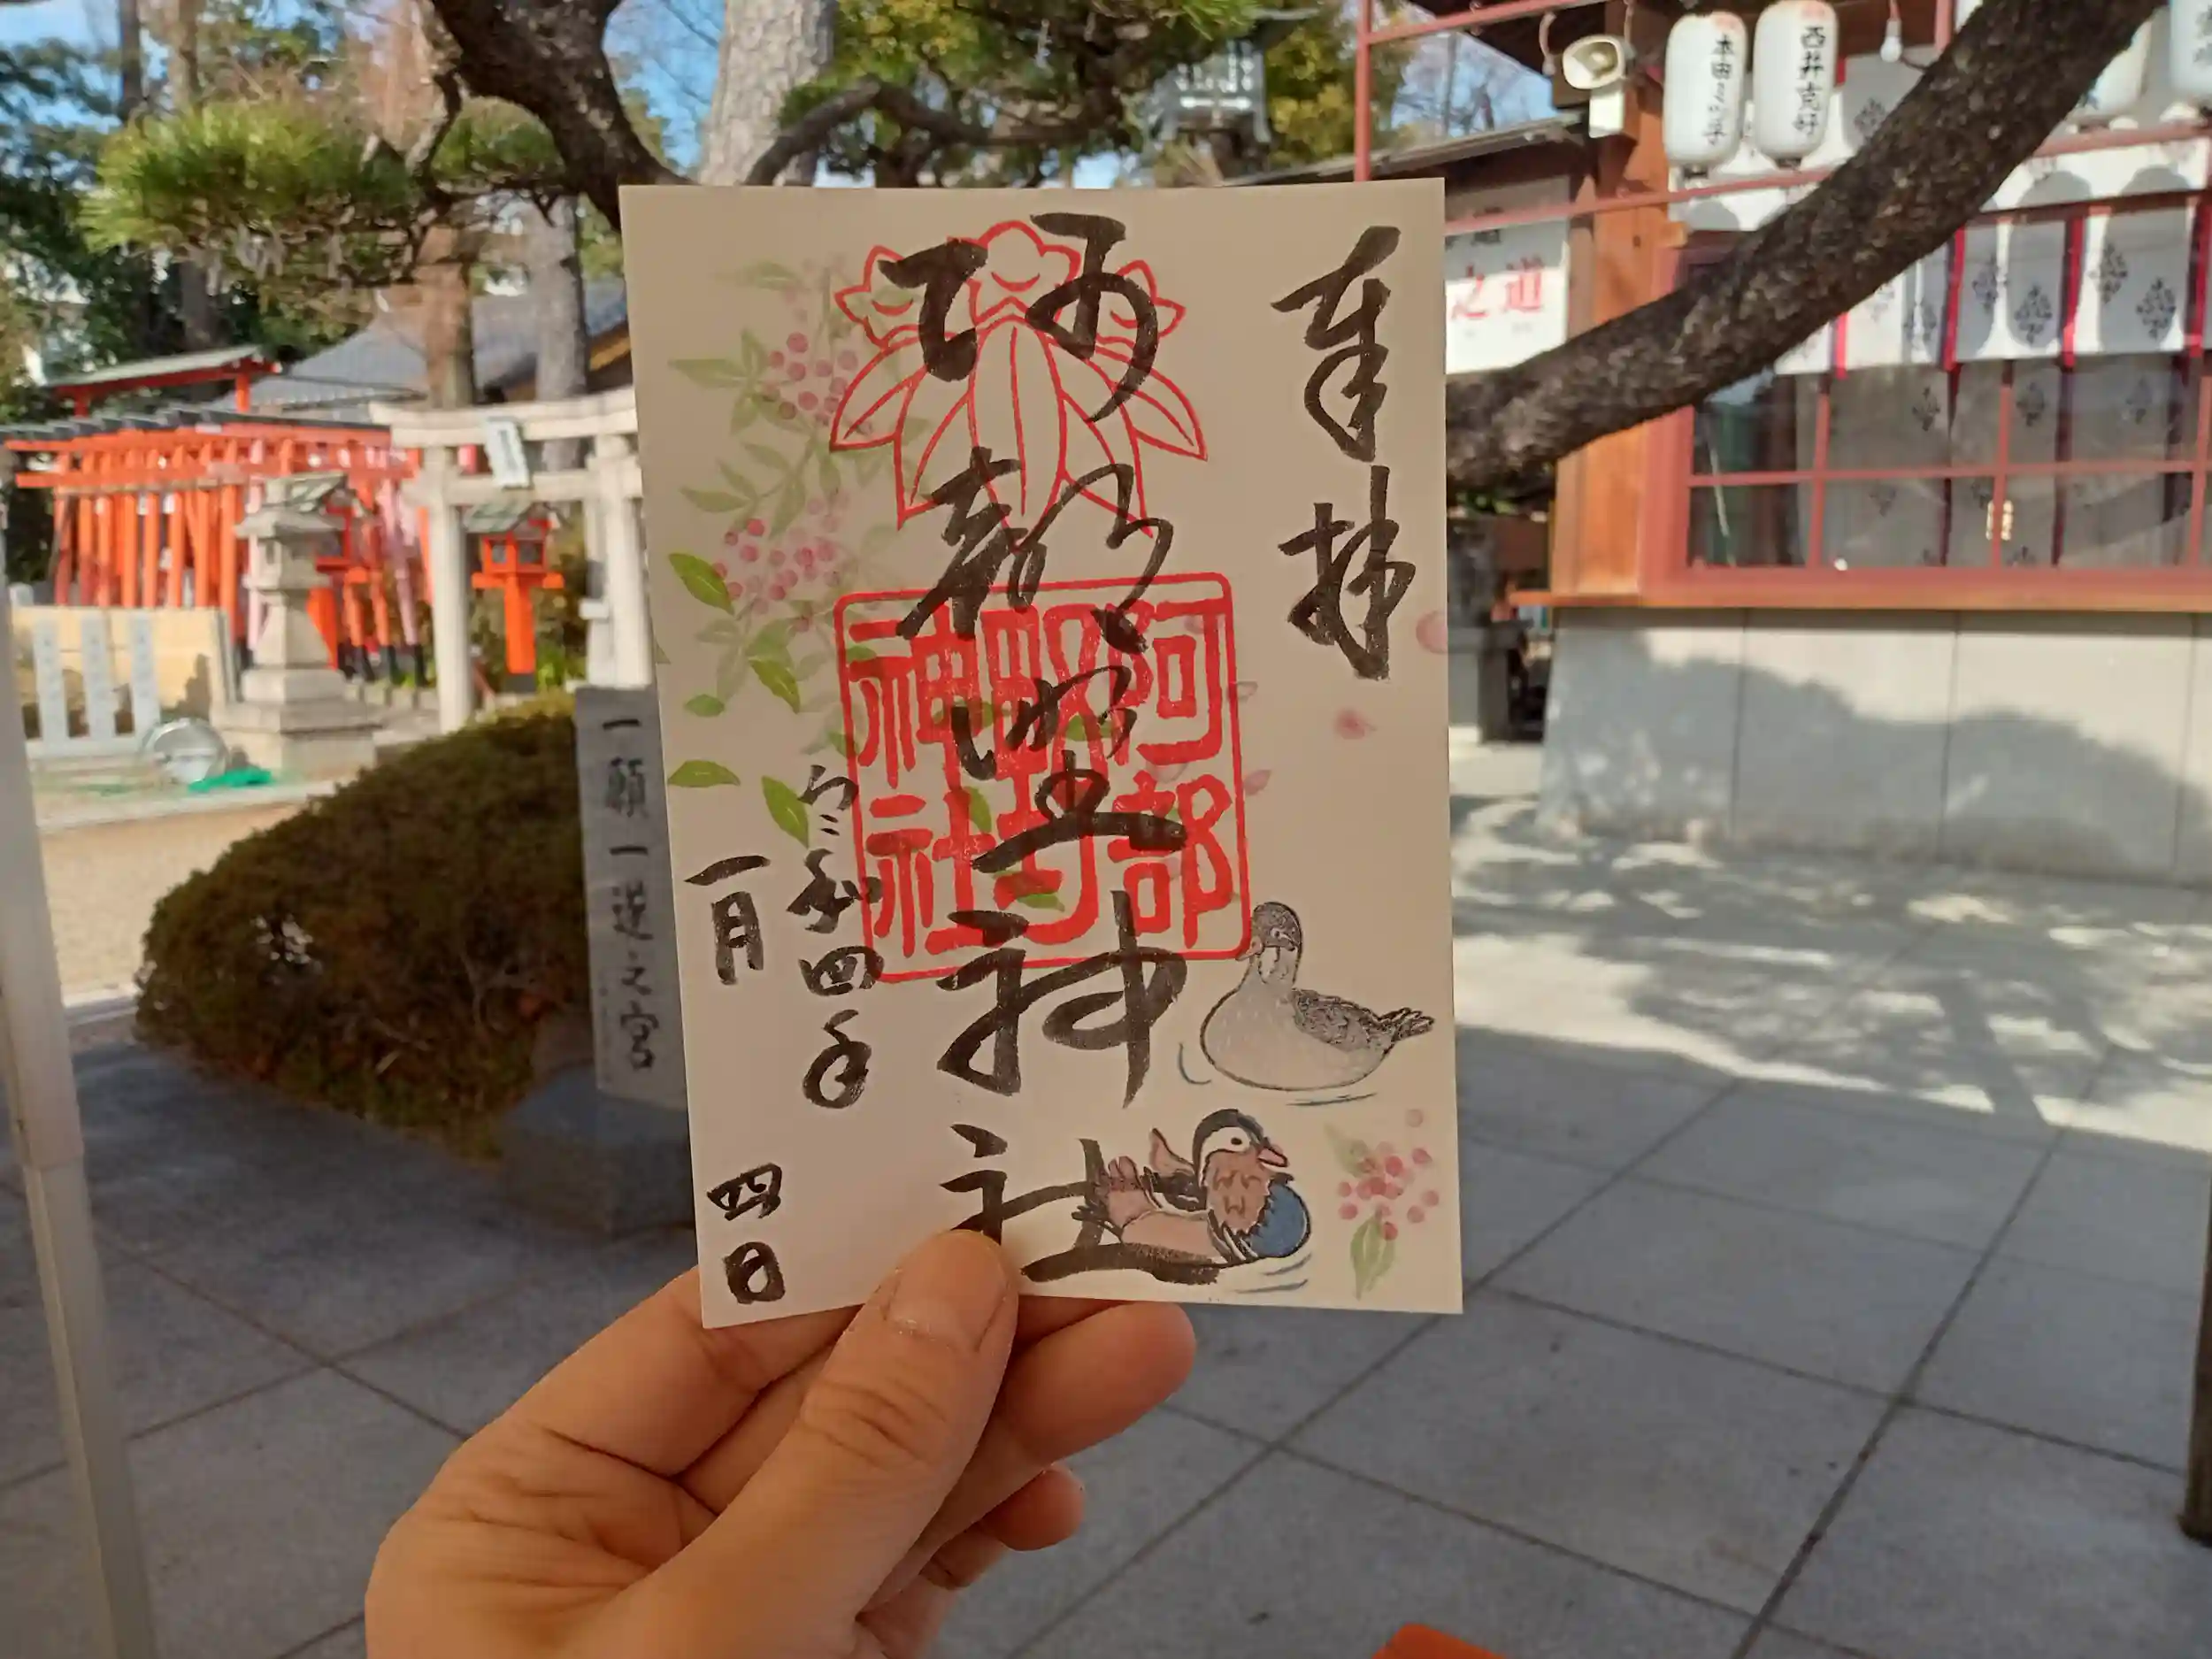 奉拝
阿部野神社
阿部野神社
令和四年
一月
四日
一願一遂之宮
西井克好
之道